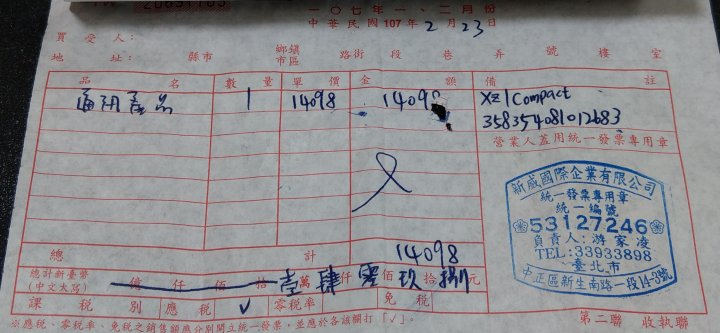 一〇七年一、二月份
中華民國107年2月23日
買受人：
地址： 縣市 鄉鎮市區 路街 段 巷 弄 號 樓 室
品名 數量 單價 金額 備註
通訊產品 1 14098 14098 XZ1 Compact
358354081012683
營業人蓋用統一發票專用章
新威國際企業有限公司
統一發票專用章
統一編號
53127246
負責人：游家凌
TEL:33933898
臺北市
中正區新生南路一段14-3號
總計 14098
總計新臺幣(中文大寫) 億仟佰拾壹萬肆仟零佰玖拾捌元
課稅別 應稅 ✓ 零稅率 免稅
※應稅、零稅率、免稅之銷售額應分別開立統一發票，並應於各該欄打「✓」。
第二聯 收執聯